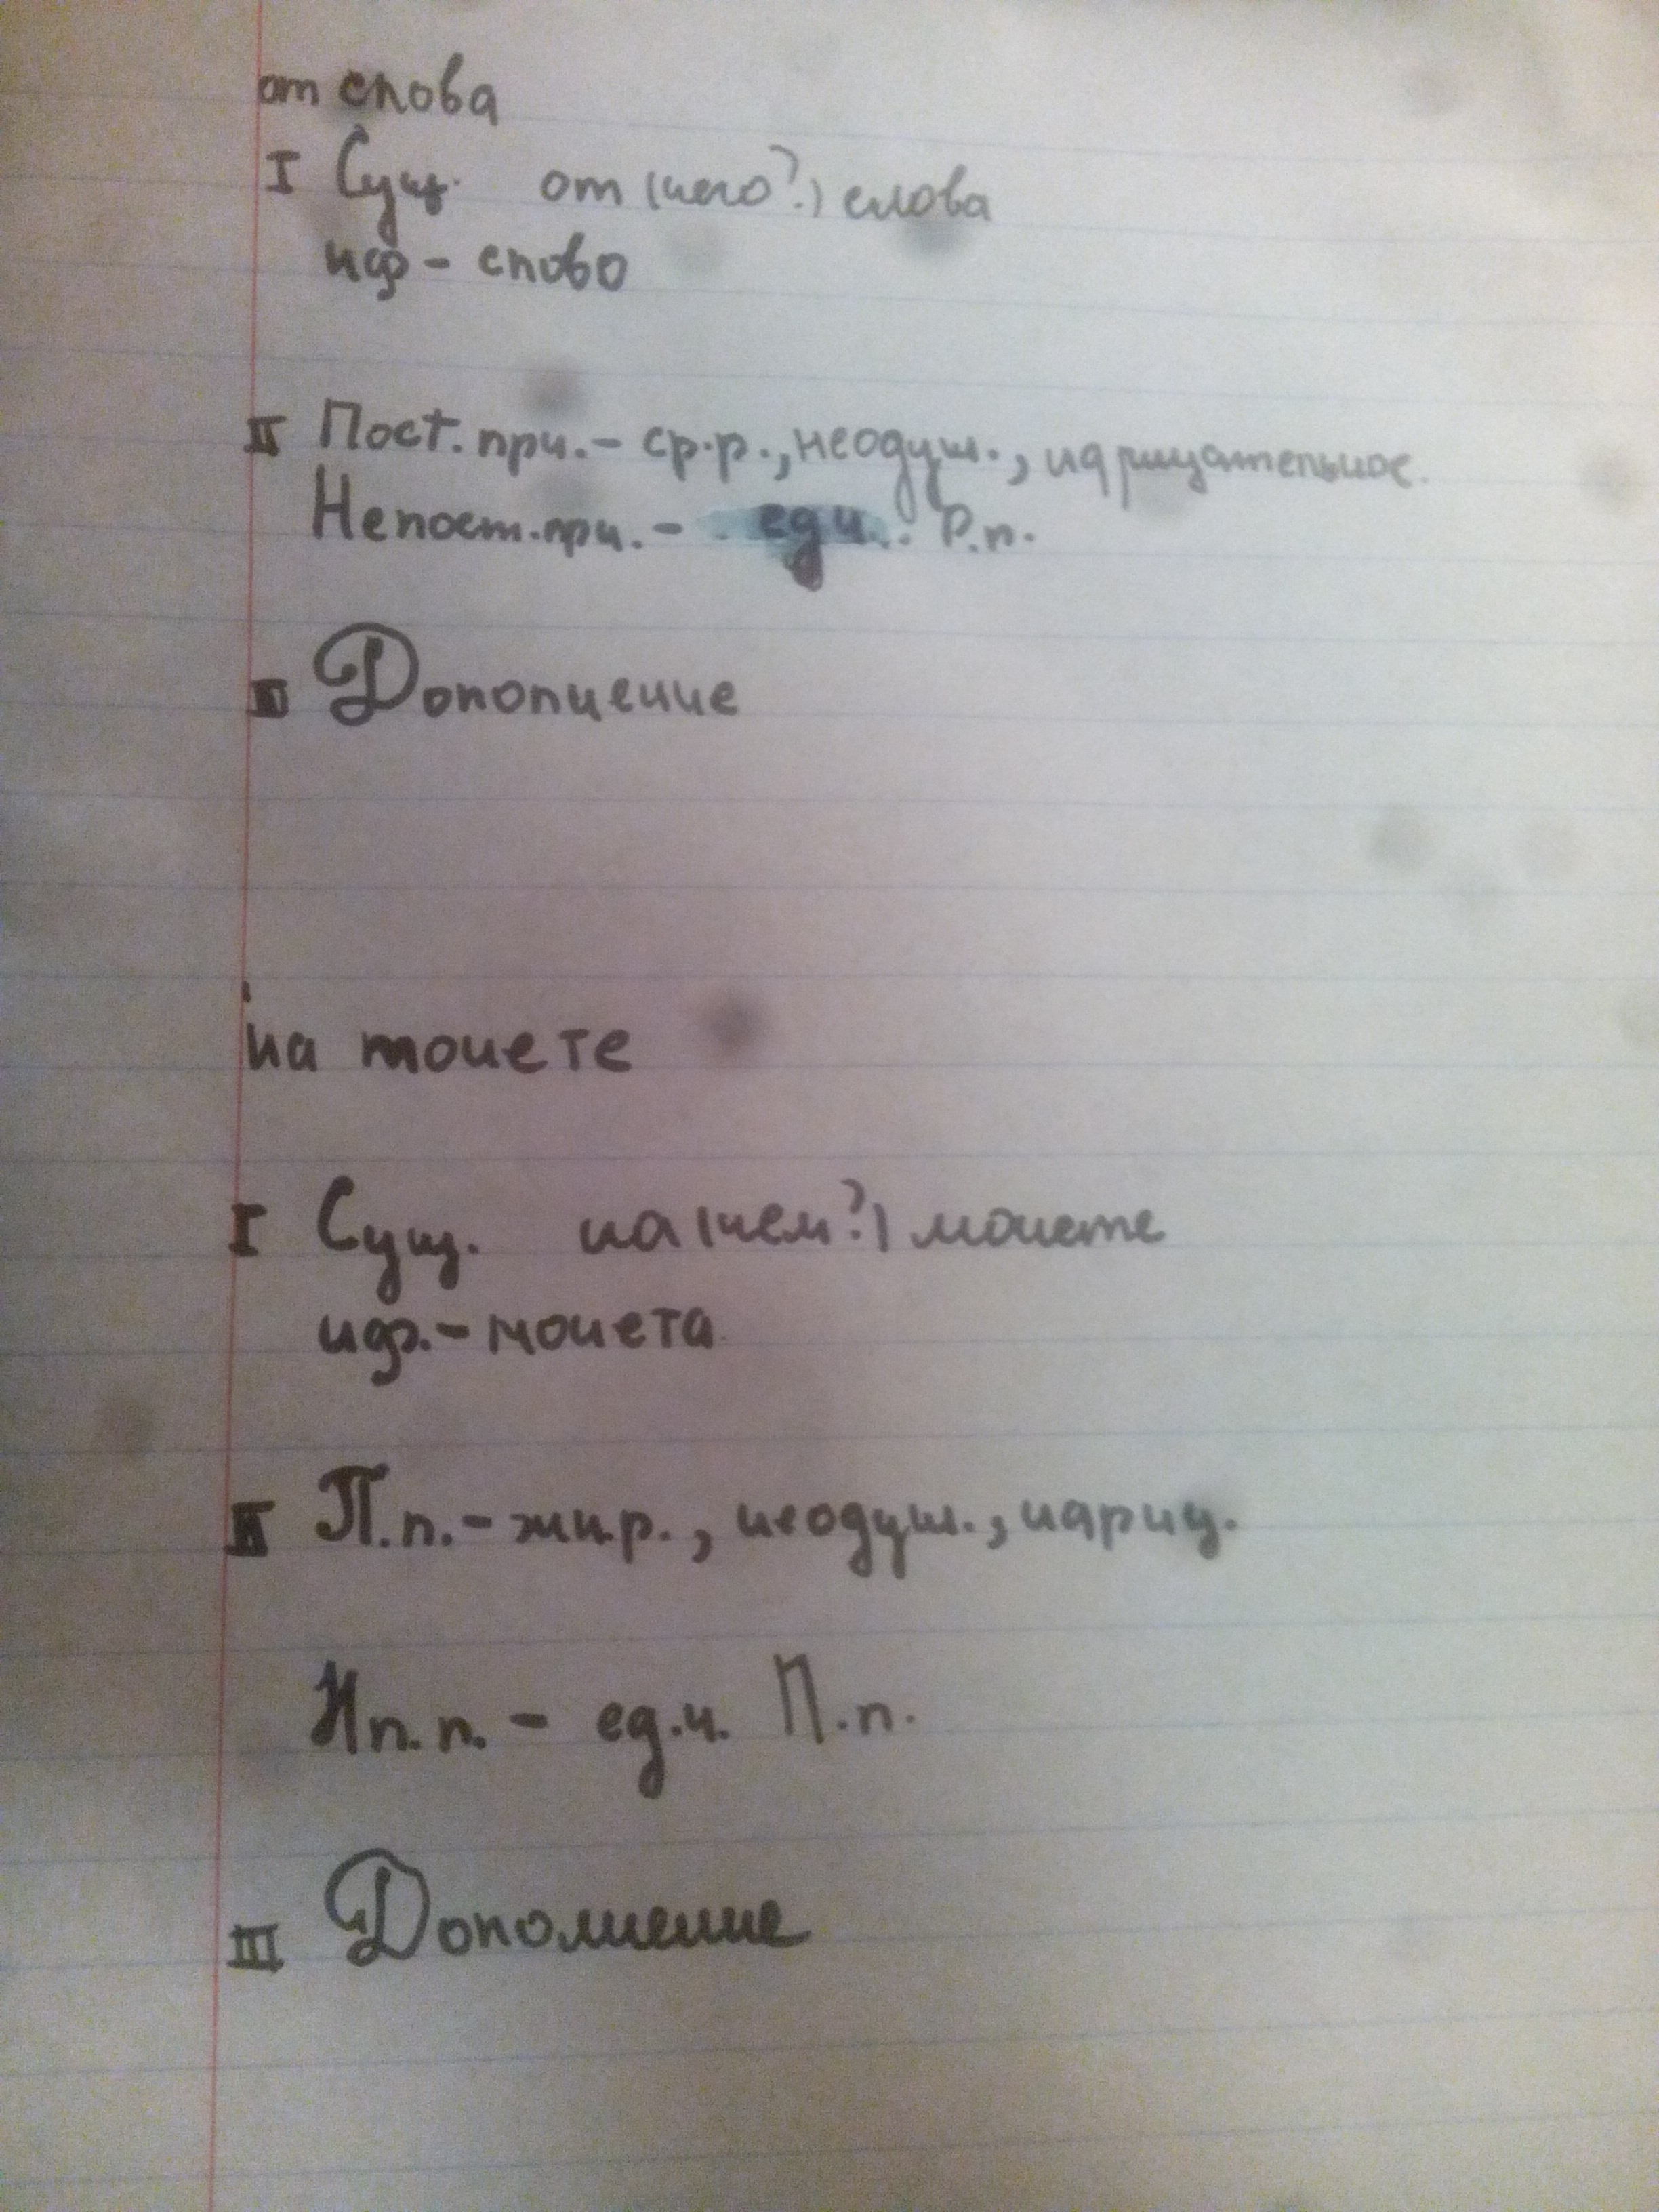 от слова
I Сущ. от (чего?) слова
нф - слово
II Пост. при. - ср.р., неодуш., нарицательное.
Непост. при. - ед ч. Р.п.
III Дополнение
на монете
I Сущ. на (чем?) монете
нф. - монета
II П.п. - жн.р., неодуш., нариц.
Нп.п. - ед.ч. П.п.
III Дополнение